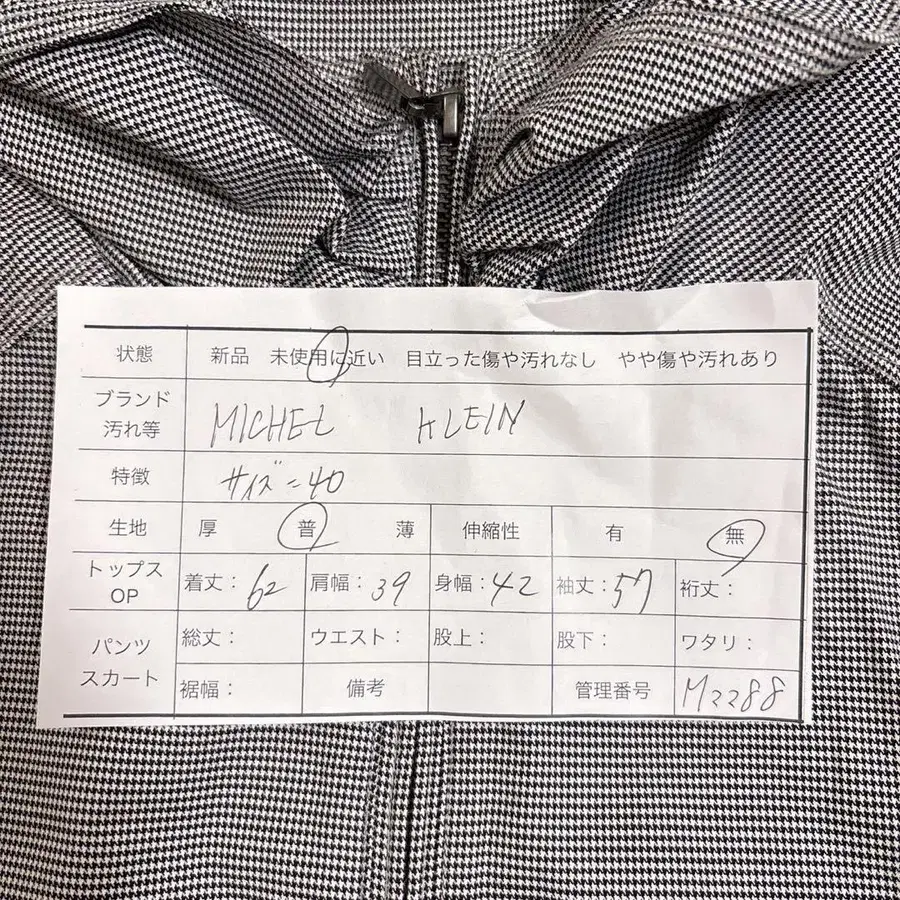 状態 新品 未使用に近い 目立った傷や汚れなし やや傷や汚れあり
ブランド 汚れ等 MICHEL KLEIN
特徴 サイズ=40
生地 厚 普 薄 伸縮性 有 無
トップス OP 着丈:62 肩幅:39 身幅:42 袖丈:57 裄丈:
パンツ スカート 総丈: ウエスト: 股上: 股下: ワタリ:
裾幅: 備考 管理番号 M2288